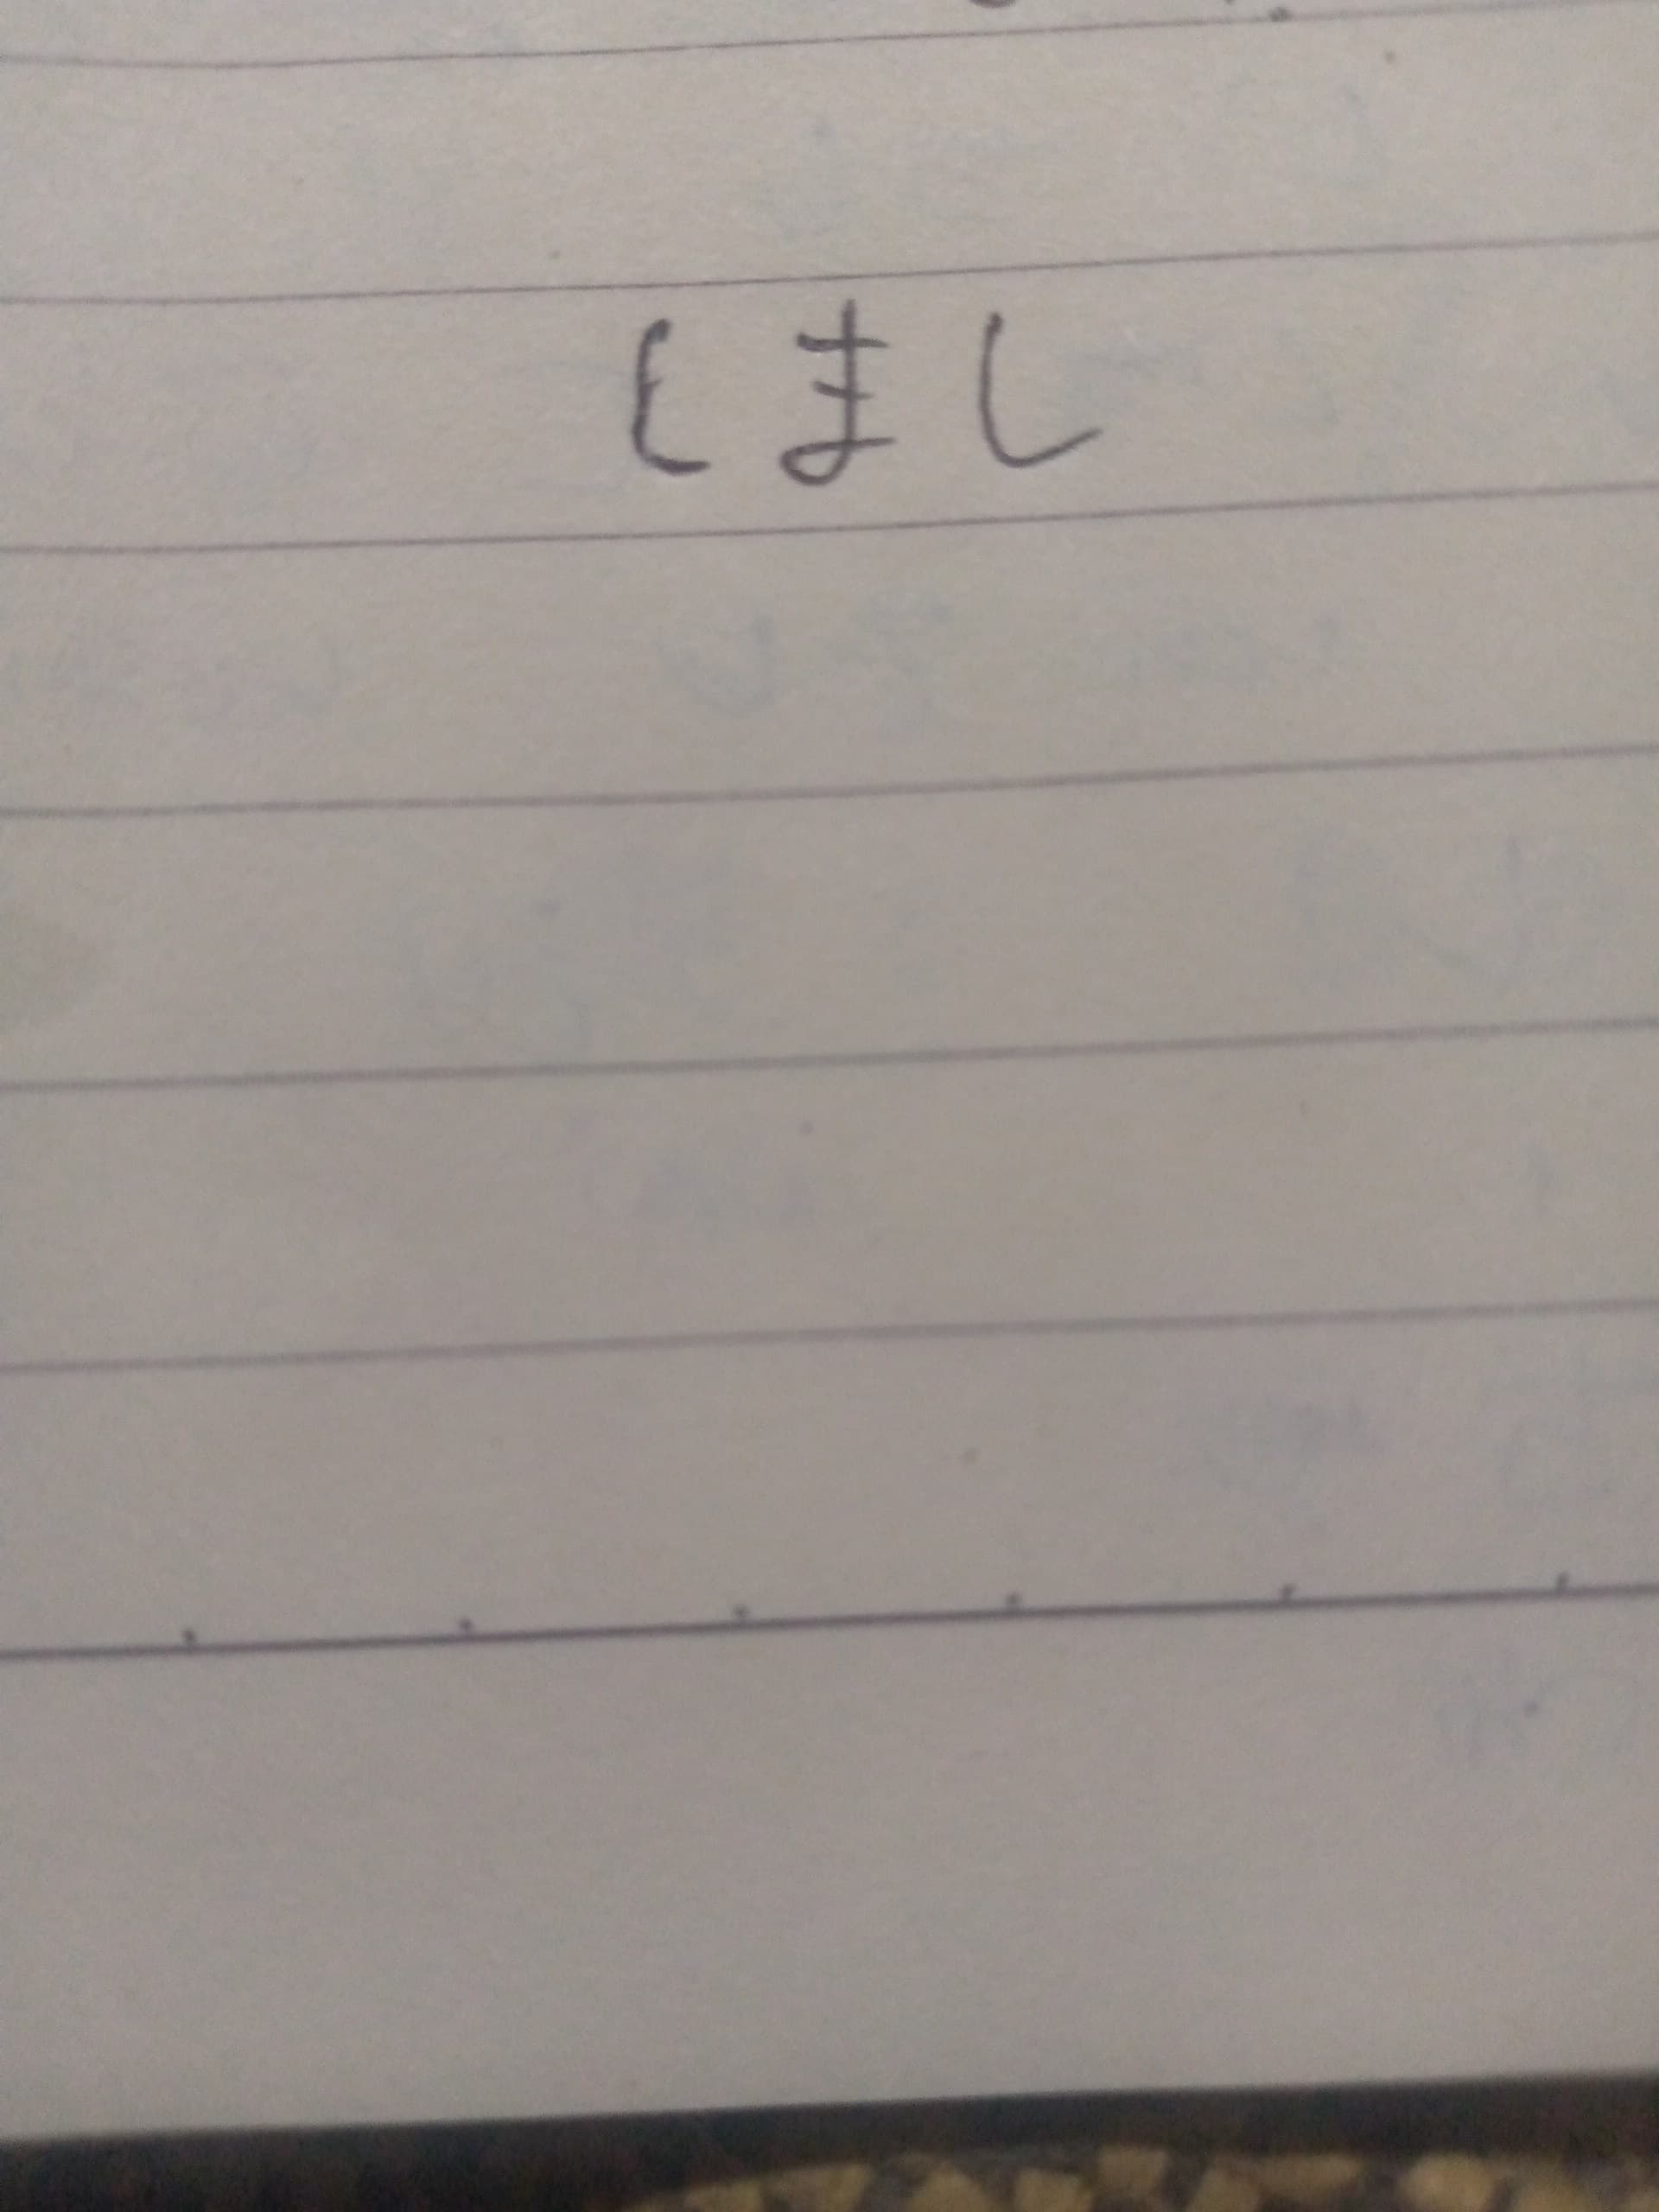 しまし